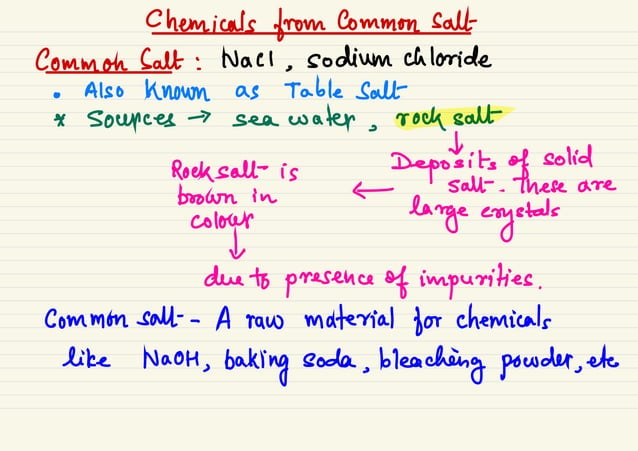 Chemicals from Common Salt
Common Salt : NaCl, sodium chloride
• Also known as Table Salt
* Sources → sea water, rock salt
↓
Deposits of solid
salt. These are
large crystals
←
Rock salt is
brown in
colour
↓
due to presence of impurities.
Common salt - A raw material for chemicals
like NaOH, baking soda, bleaching powder, etc